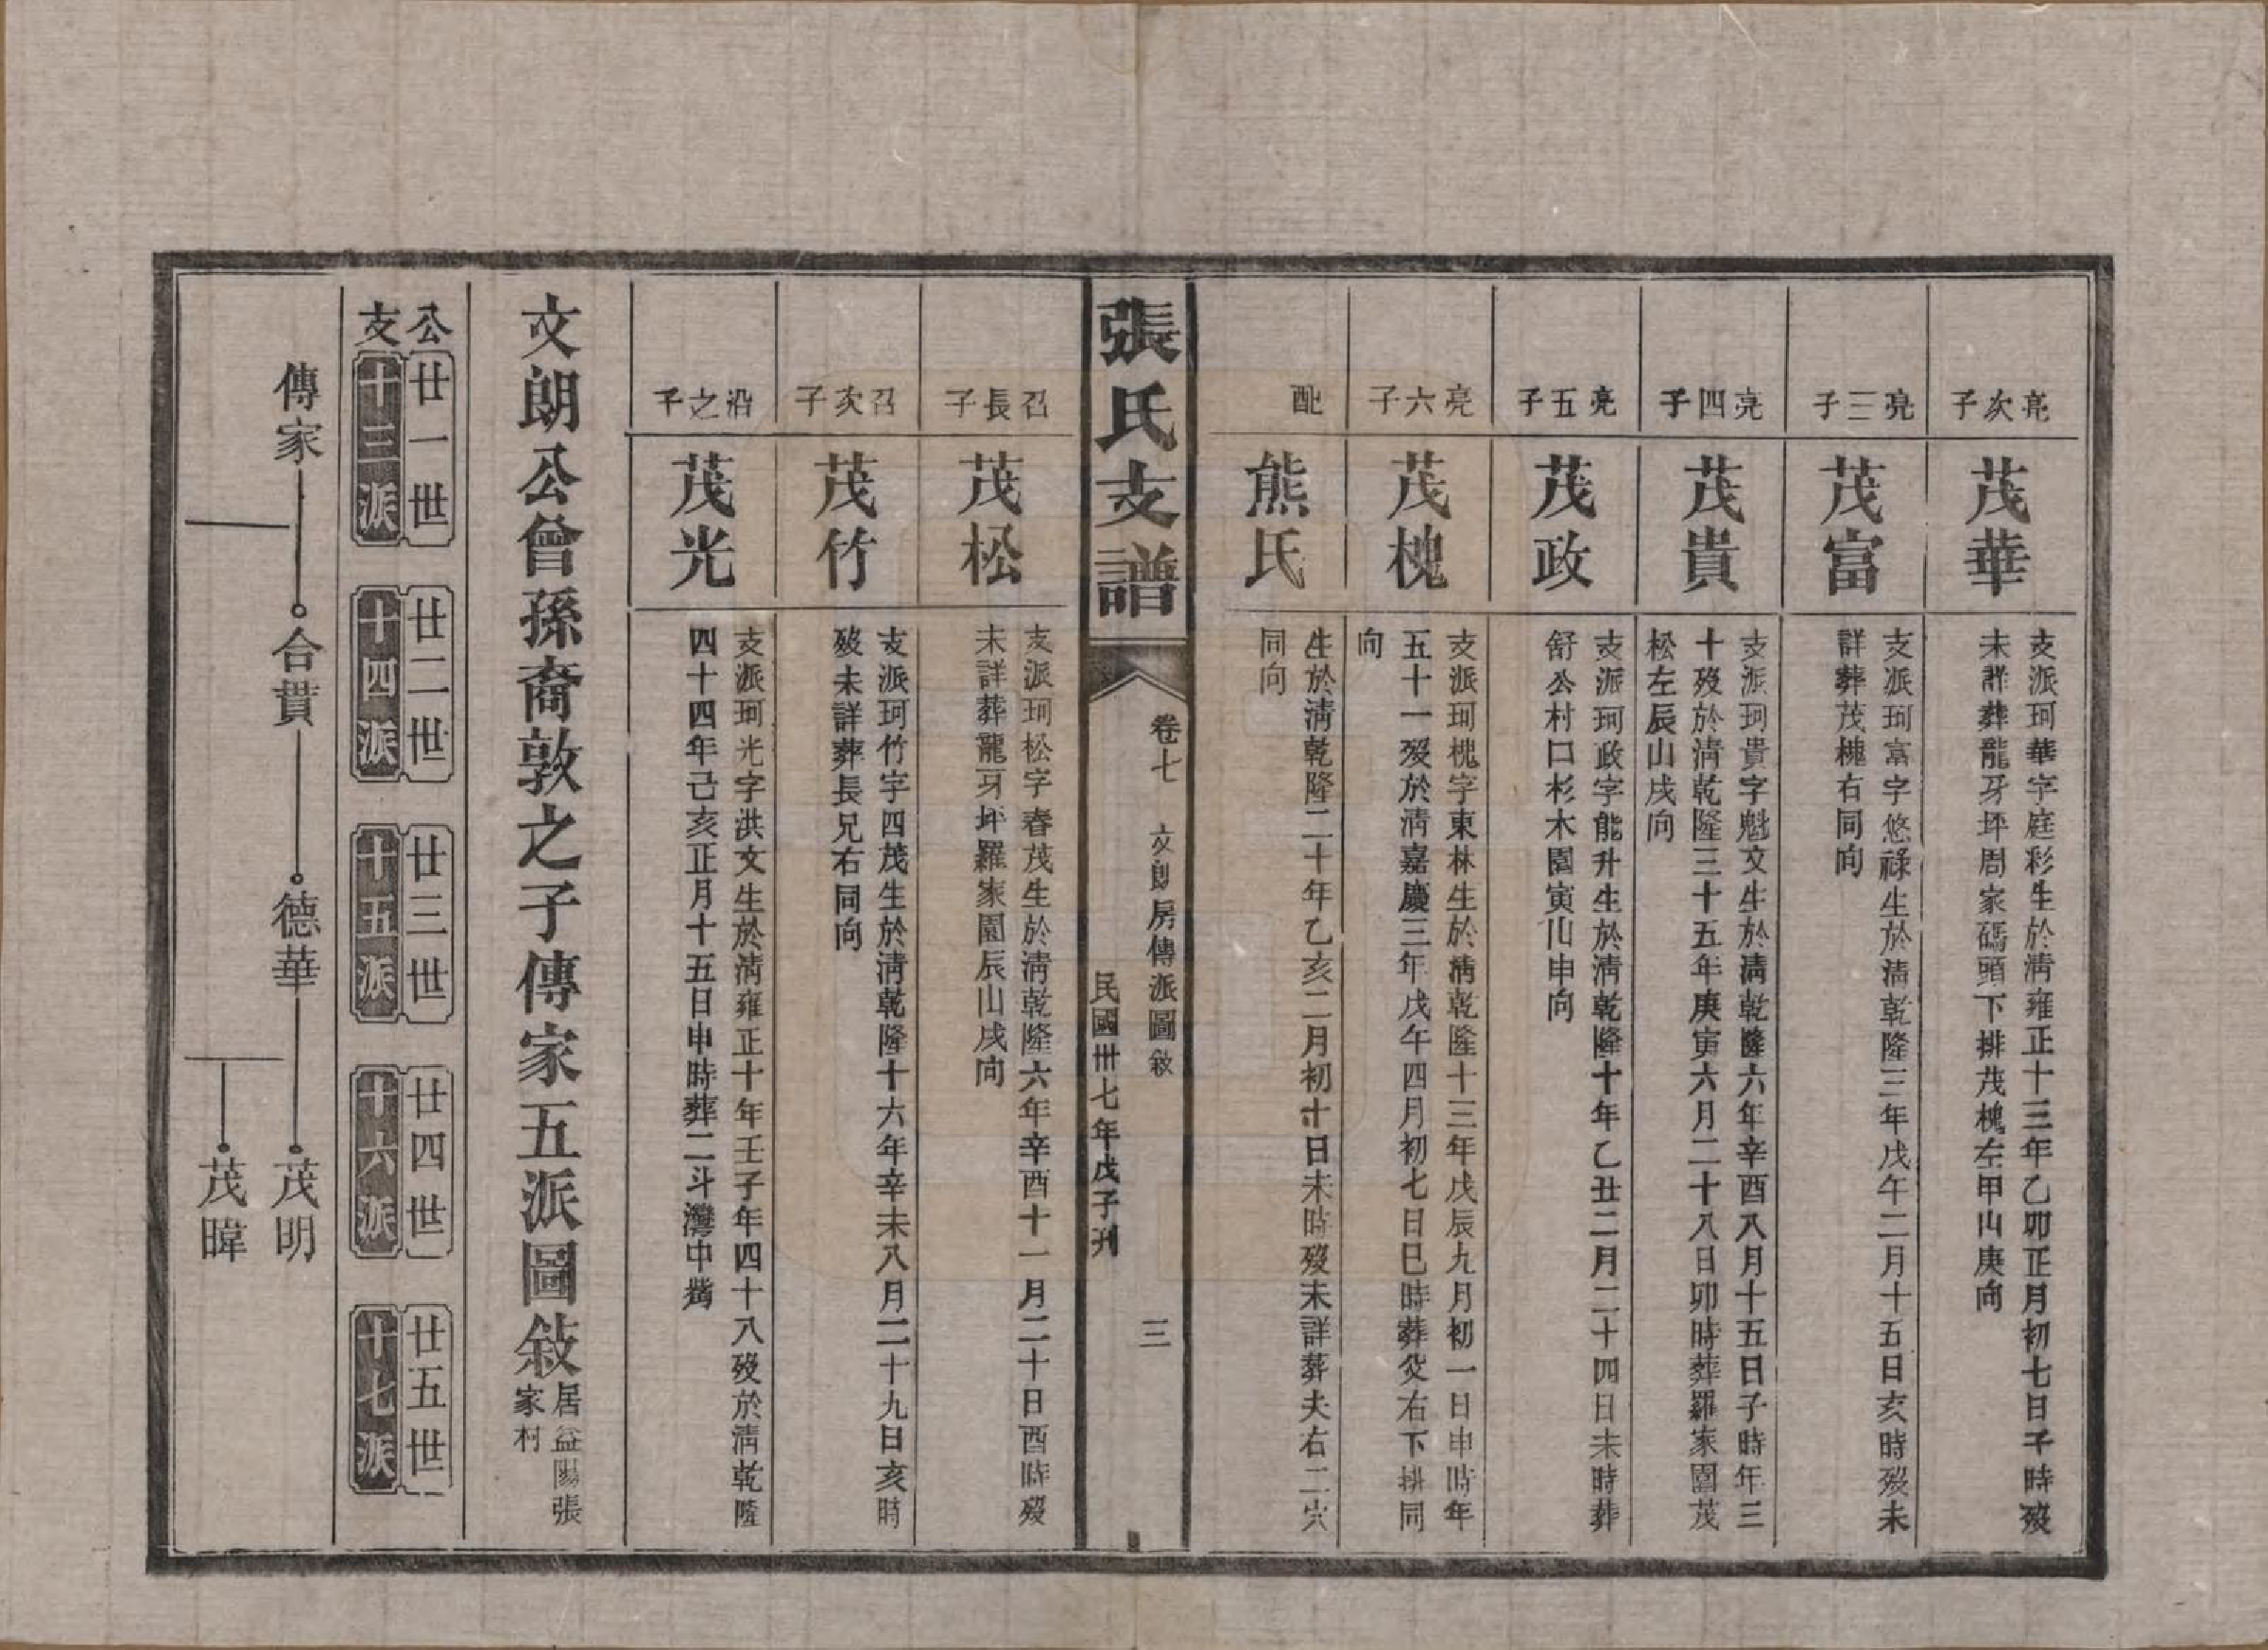 亮次子
茂華
支派珂華字庭彩生於清雍正十三年乙卯正月初七日子時歿
未詳葬龍牙坪周家碼頭下排茂槐左甲山庚向
亮三子
茂富
支派珂富字悠祿生於清乾隆三年戊午二月十五日亥時歿未
詳葬茂槐右同向
亮四子
茂貴
支派珂貴字魁文生於清乾隆六年辛酉八月十五日子時年三
十歿於清乾隆三十五年庚寅六月二十八日卯時葬羅家園茂
松左辰山戌向
亮五子
茂政
支派珂政字能升生於清乾隆十年乙丑二月二十四日未時葬
舒公村口杉木園寅山申向
亮六子
茂槐
支派珂槐字東林生於清乾隆十三年戊辰九月初一日申時年
五十一歿於清嘉慶三年戊午四月初七日巳時葬父右下排同
向
配
熊氏
生於清乾隆二十年乙亥二月初十日未時歿未詳葬夫右二穴
同向
張氏支譜
卷七 文朗房傳派圖敘
三
民國卅七年戊子刊
召長子
茂松
支派珂松字春茂生於清乾隆六年辛酉十一月二十日酉時歿
未詳葬龍牙坪羅家園辰山戌向
召次子
茂竹
支派珂竹字四茂生於清乾隆十六年辛未八月二十九日亥時
歿未詳葬長兄右同向
沿之子
茂光
支派珂光字洪文生於清雍正十年壬子年四十八歿於清乾隆
四十四年己亥正月十五日申時葬二斗灣中嘴
文朗公曾孫裔敦之子傳家五派圖敘
居益陽張
家村
公
廿一世 廿二世 廿三世 廿四世 廿五世
支
十三派 十四派 十五派 十六派 十七派
傳家 合貫 德華 茂明
茂暐